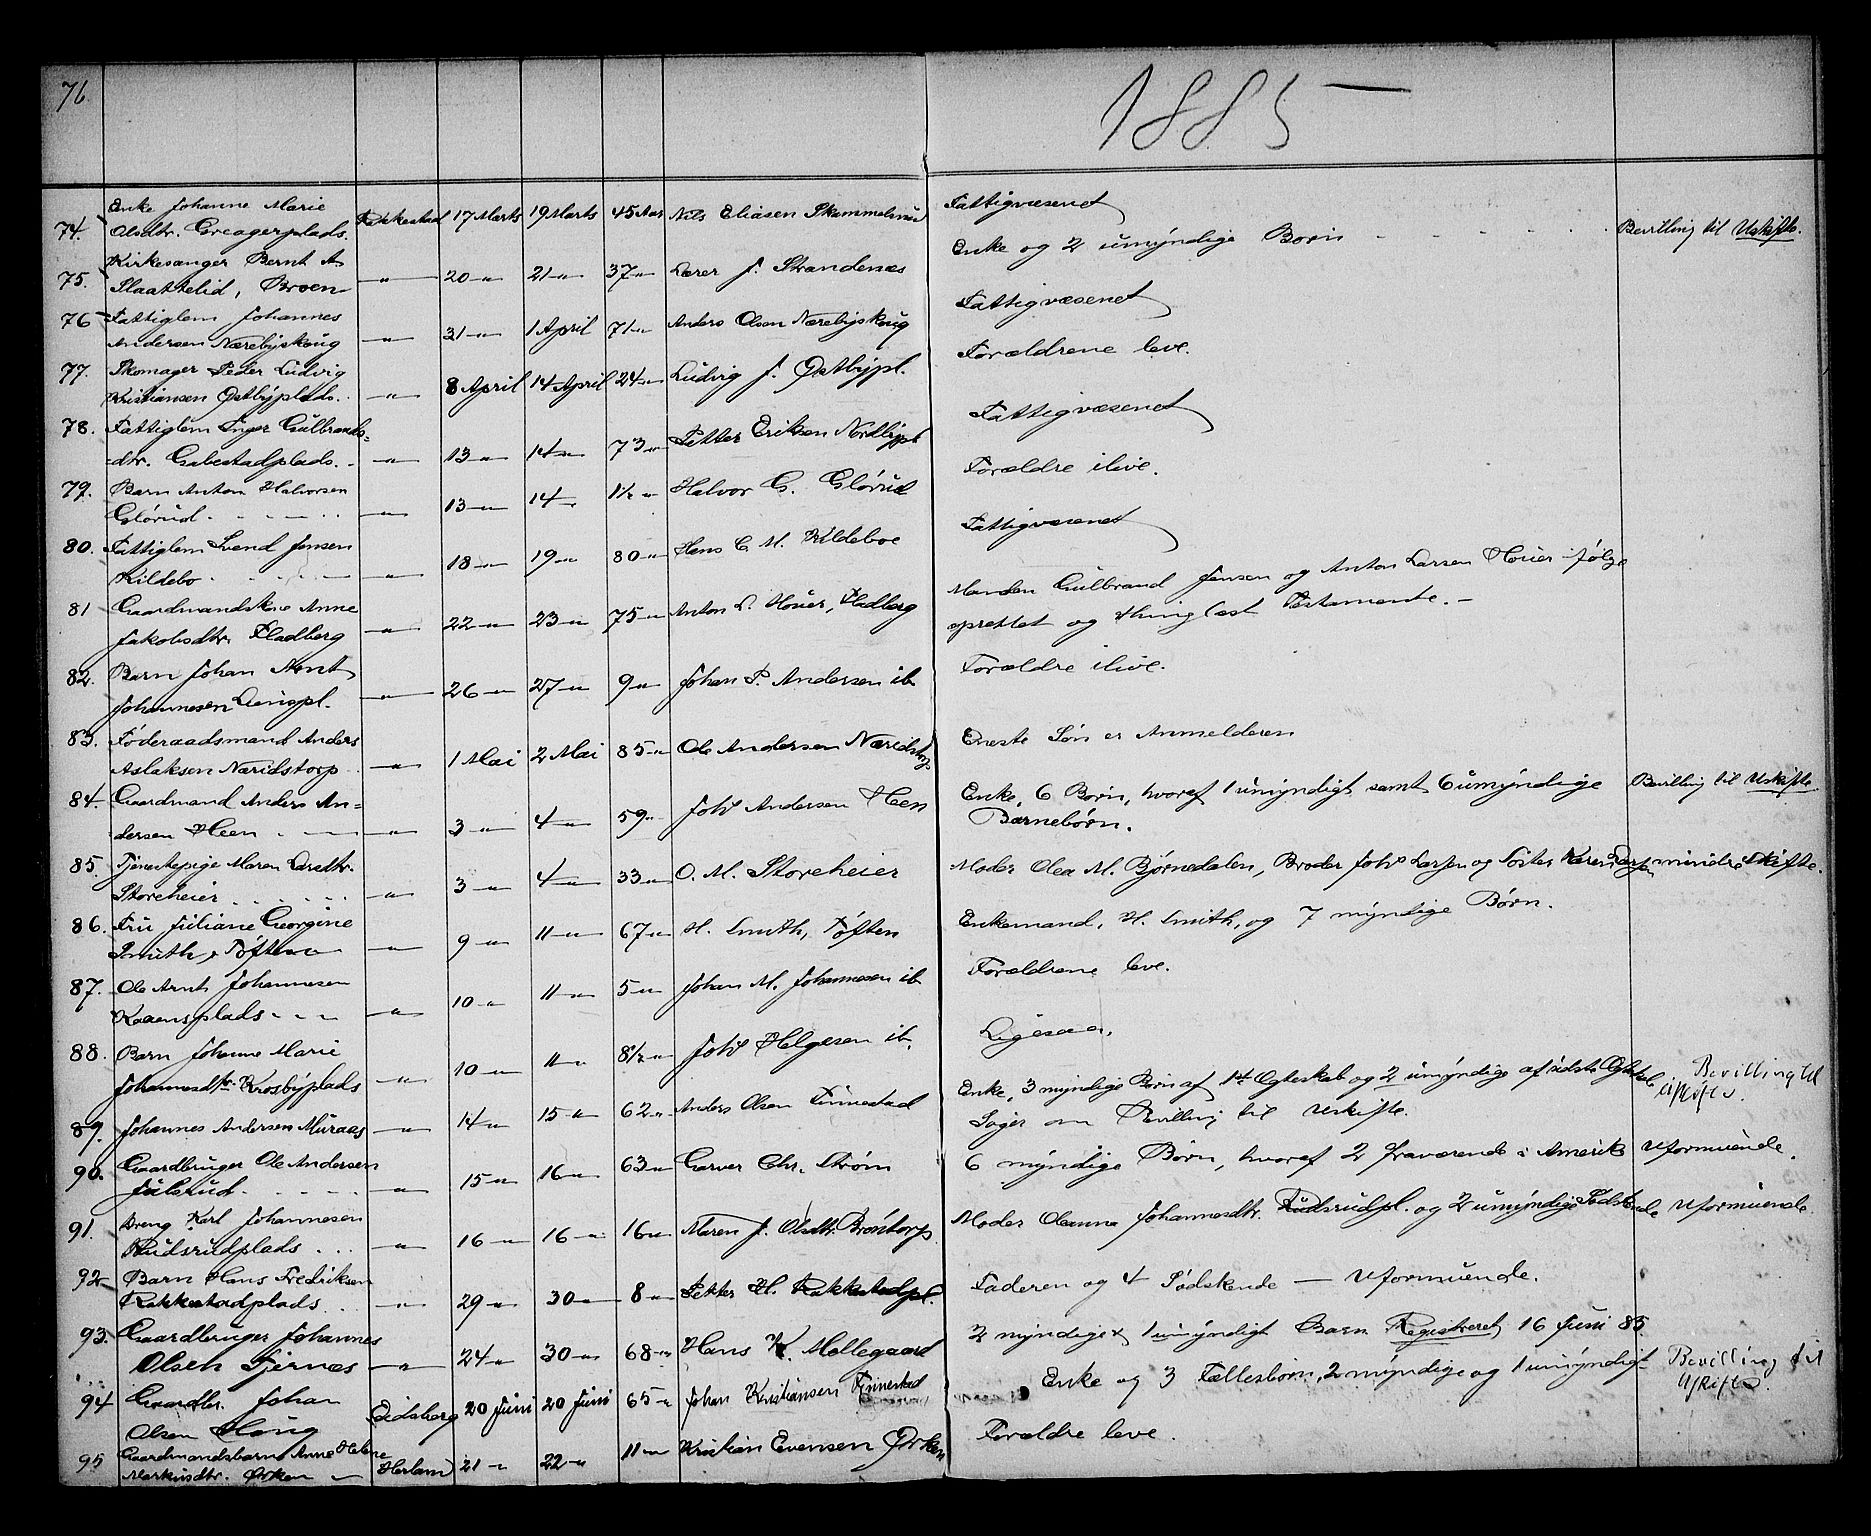 76
1885
Enke Johanne Marie
74. Olsdtr. Greagerplads. Rakkestad 17 Marts 19 Marts 45 Aar Nils Eliasen Fattigvæsenet
Kirkesanger Bernt A Enke og 2 umyndige Børn - - - - - Bevilling til Uskifte.
75. Slaattelid, Broen — " — 20 — " — 21 — " — 37 — " — Lærer J. Strandenæs
76 Fattiglem Johannes Fattigvæsenet
Andersen Nærebyskoug — " — 31 — " — 1 April 71 — " — Anders Olsen Nærebyskoug
77. Skomager Peder Ludvig Forældrene leve.
Kristiansen Østbyplads. — " — 8 April 14 April 24 — " — Ludvig J. Østbypl.
78. Fattiglem Inger Gulbrands- Fattigvæsenet
=dtr. Gabestadplads. — " — 13 — " — 14 — " — 73 — " — Petter Eriksen Nordbypl
79. Barn Anton Halvorsen Forældre ilive.
Glørud. — " — 13 — " — 14 — " — 1½ — " — Halvor G. Glørud
80. Fattiglem Svend Jensen Fattigvæsenet
Kildebo — " — 18 — " — 19 — " — 80 — " — Hans C. M. Kildeboe
81 Gaardmandskone Anne Manden Gulbrand Jensen og Anton Larsen Houer ifølge
Jakobsdtr. Fladberg — " — 22 — " — 23 — " — 75 — " — Anton L. Houer, Fladberg oprettet og thinglæst Testamente. —
82. Barn Johan Arnt Forældre ilive.
Johannesen — " — 26 — " — 27 — " — 9 — " — Johan P. Andersen ib
83. Føderaadsmand Anders Eneste Søn er Anmelderen
Aslaksen Næridstorp — " — 1 Mai 2 Mai 85 — " — Ole Andersen Næridstorp
84. Gaardmand Anders An= Enke, 6 Børn, hvoraf 1 umyndigt, samt 6 umyndige Bevilling til Uskifte
dersen Heen — " — 3 — " — 4 — " — 59 — " — Johs Andersen Heen Barnebørn.
85. Tjenestepige Maren Larsdtr. Moder Olea M. Bjørnedalen, Broder Johs Larsen og Søster Karen Larsen mindre Skifte.
Storeheier — " — 3 — " — 4 — " — 33 — " — O. M. Storeheier
86. Fru Juliane Georgine Enkemand, H. Smith, og 7 myndige Børn.
Smith, Toften — " — 9 — " — 11 — " — 67 — " — H. Smith, Toften
87. Ole Arnt Johannesen Forældrene leve.
Kaaensplads — " — 10 — " — 11 — " — 5 — " — Johan M. Johannesen ib
88. Barn Johanne Marie Ligesaa.
Johannesdtr. Krosbyplads — " — 10 — " — 11 — " — 8½ — " — Johs Helgesen ib.
Enke, 3 myndige Børn af 1st Ægteskab og 2 umyndige af sidste Ægtesk. Bevilling til
Uskifte.
89. Johannes Andersen Muraas — " — 14 — " — 15 — " — 62 — " — Anders Olsen Finnestad Søger om Bevilling til Uskifte.
90. Gaardbruger Ole Andersen 6 myndige Børn, hvoraf 2 fraværende i Amerik Uformuende.
Julsrud. — " — 15 — " — 16 — " — 63 — " — Garver Chr. Strøm
91. Dreng Karl Johannesen Moder Oleanna Johannesdtr. Rudsrudpl. og 2 umyndige Søskende Uformuende.
Rudsrudplads — " — 16 — " — 16 — " — 16 — " — Maren J. Olsdtr. Brøntorp
92 Barn Hans Fredriksen Faderen og 4 Sødskende — Uformuende.
Rakkestadplads — " — 29 — " — 30 — " — 8 — " — Petter H. Rakkestadpl.
93. Gaardbruger Johannes 2 myndige & 1 umyndigt Barn Registreret 16 Juni 85
Olsen Tjernæs — " — 24 — " — 30 — " — 68 — " — Hans K. Møllegaard
94 Gaardbr. Johan Enke og 3 Fællesbørn, 2 myndige og 1 umyndigt Bevilling til
Uskifte.
Olsen Haug Eidsberg 20 Juni 20 Juni 65 — " — Johan Kristiansen Finnestad
95 Gaardmandsbarn Anne Helene Forældre leve.
Markusdtr. Ørken — Herland 21 — " — 22 — " — 11 — " — Kristian Evensen Ørken